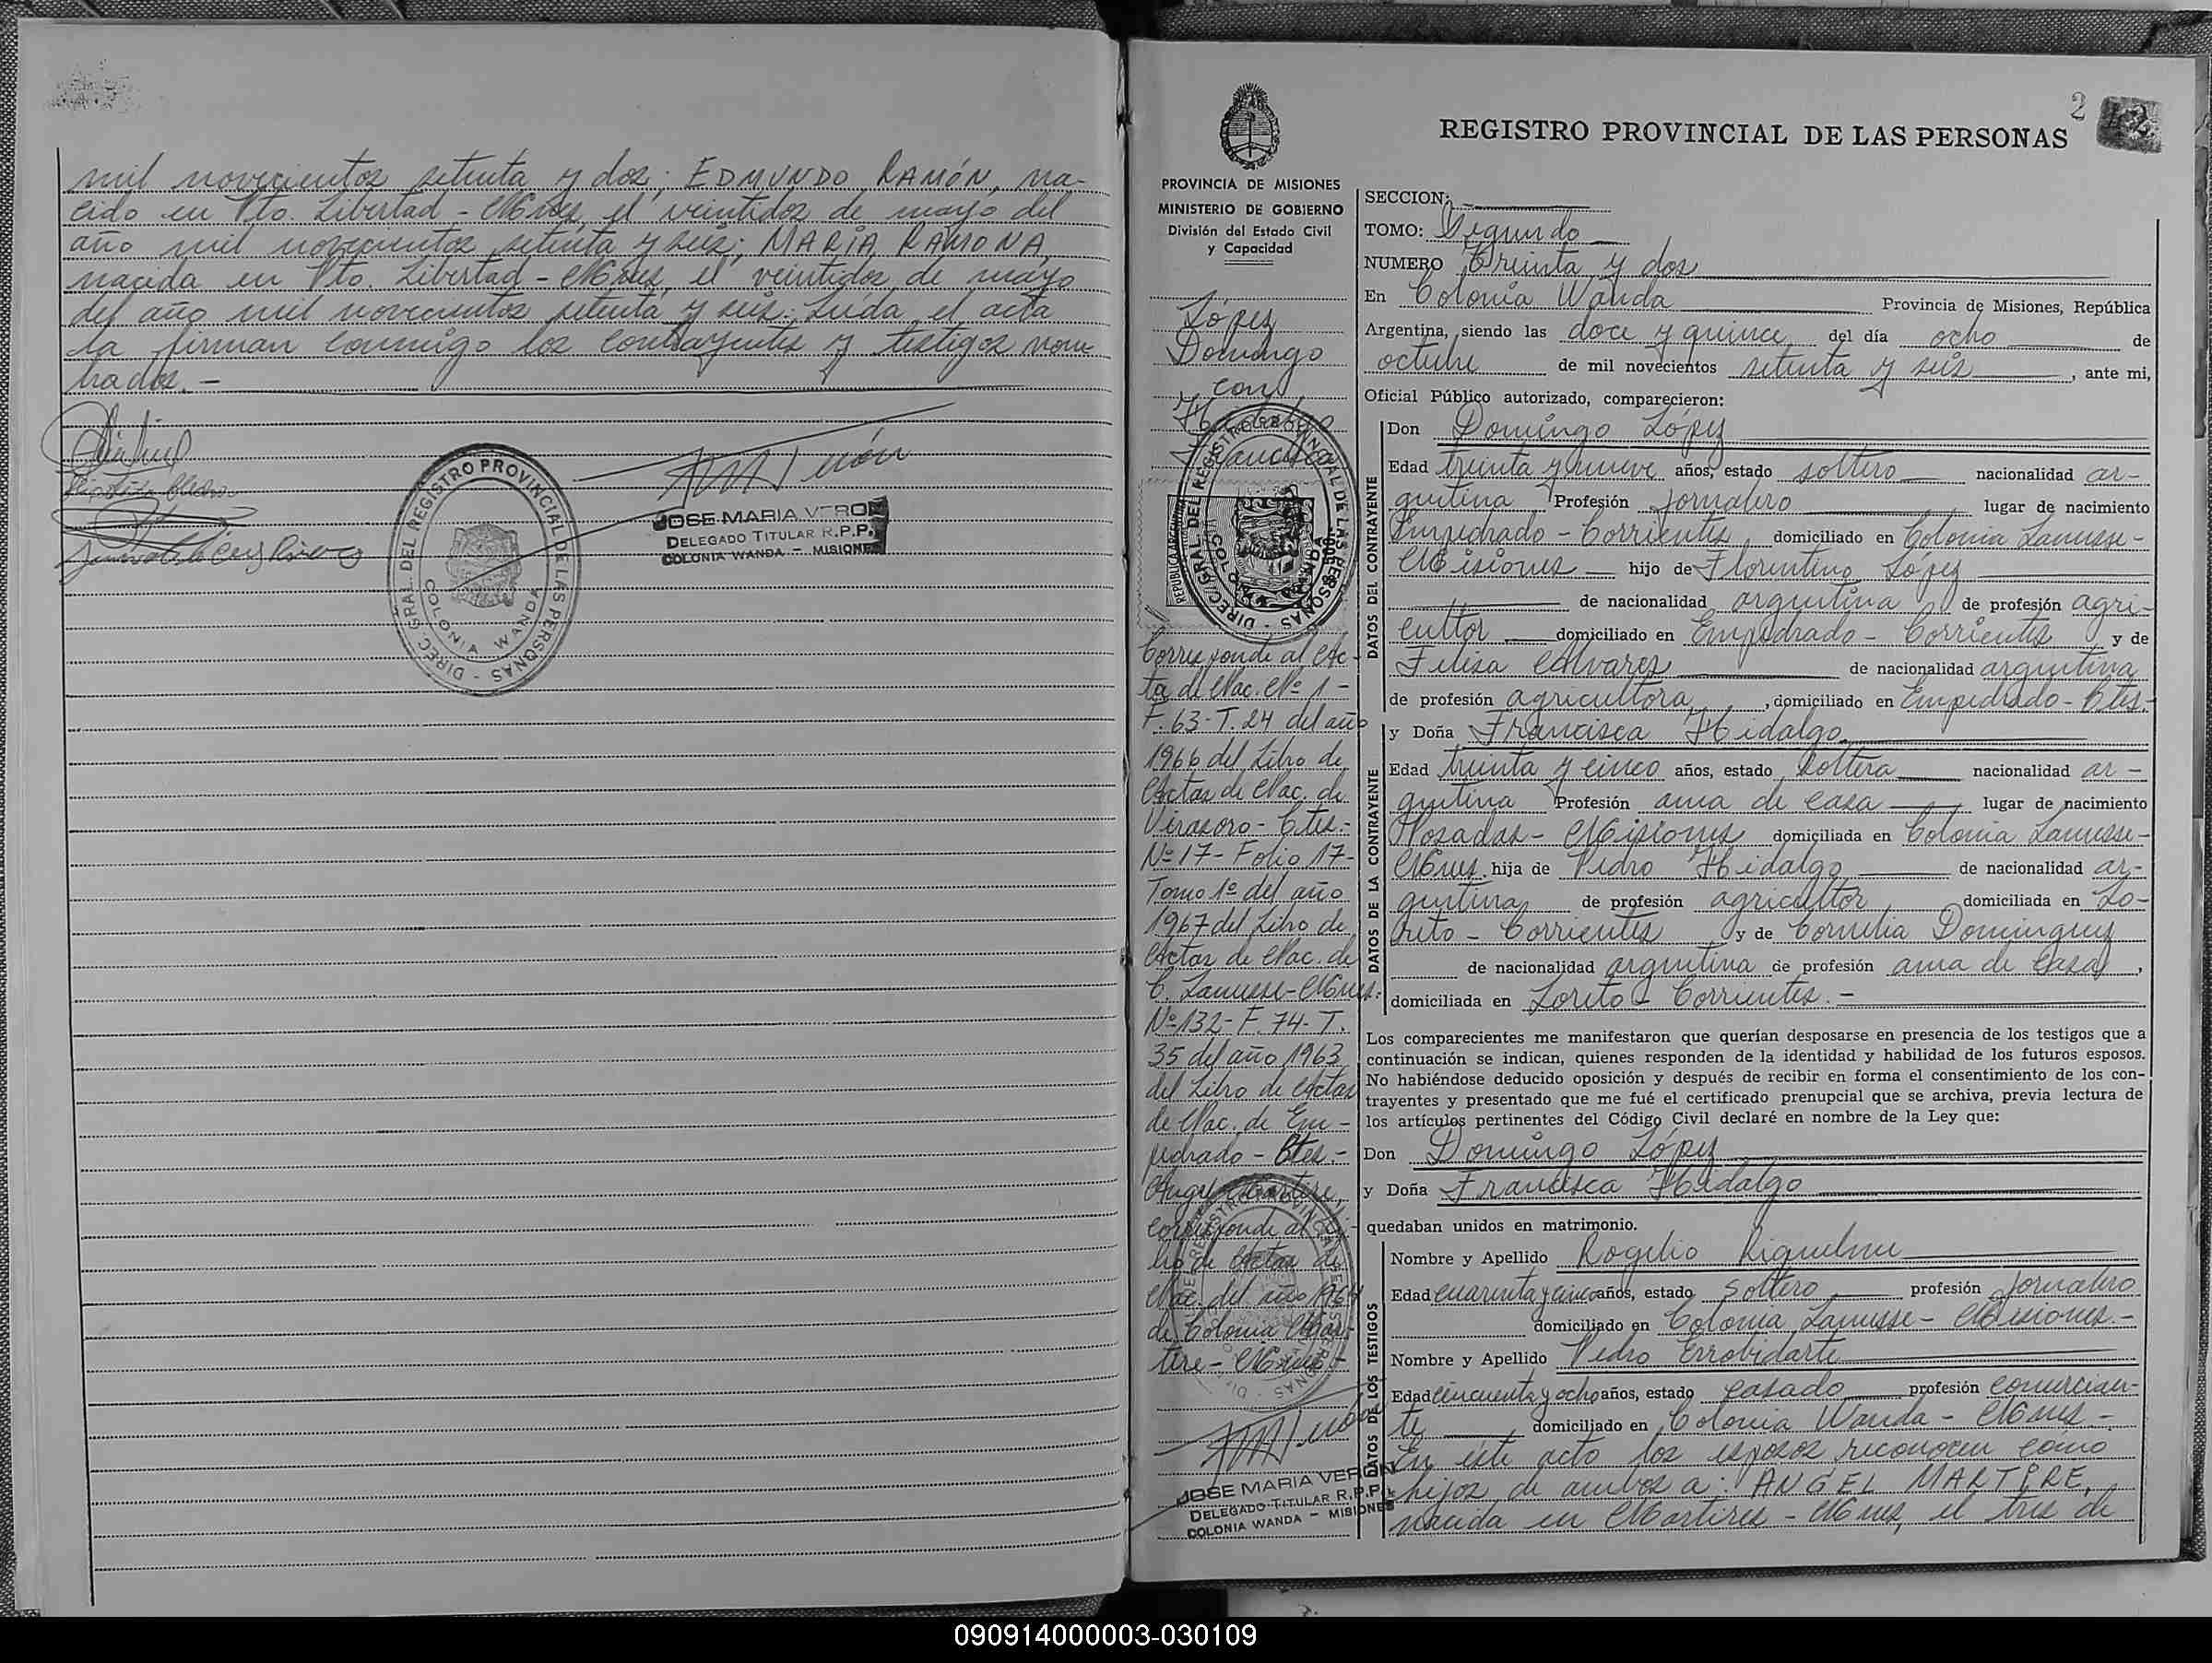 mil novecientos setenta y dos; EDMUNDO RAMÓN, na-
cido en Pto. Libertad - Mnes, el veintidos de mayo del
año mil novecientos setenta y seis; MARÍA RAMONA,
nacida en Pto. Libertad - Mnes, el veintidos de mayo
del año mil novecientos setenta y seis. Leída el acta
la firman conmigo los contrayentes y testigos nom
brados. -
DIREC. GRAL. DEL REGISTRO PROVINCIAL DE LAS PERSONAS
COLONIA WANDA
JOSE MARIA VERON
DELEGADO TITULAR R.P.P.
COLONIA WANDA - MISIONES
2
REGISTRO PROVINCIAL DE LAS PERSONAS
PROVINCIA DE MISIONES
MINISTERIO DE GOBIERNO
División del Estado Civil
y Capacidad
López
Domingo
con
Hidalgo
Francisca
Corresponde al Ac-
ta de Nac. Nº 1 -
F. 63 - T. 24 del año
1966 del Libro de
Actas de Nac. de
Virasoro - Ctes. -
Nº 17 - Folio 17 -
Tomo 1º del año
1967 del Libro de
Actas de Nac. de
C. Lanusse - Mnes.
Nº 132 - F. 74 - T.
35 del año 1963
del Libro de Actas
de Nac. de Em -
pedrado - Ctes. -
Angel Martire,
corresponde al Li-
bro de Actas de
Nac. del año 1964
de Colonia Mar-
tire - Mnes -
JOSE MARIA VERON
DELEGADO TITULAR R.P.P.
COLONIA WANDA - MISIONES
SECCION:
TOMO: Segundo
NUMERO Treinta y dos
En Colonia Wanda Provincia de Misiones, República
Argentina, siendo las doce y quince del día ocho de
octubre de mil novecientos setenta y seis, ante mi,
Oficial Público autorizado, comparecieron:
DATOS DEL CONTRAYENTE
Don Domingo López
Edad treinta y nueve años, estado soltero nacionalidad ar-
gentina Profesión jornalero lugar de nacimiento
Empedrado - Corrientes domiciliado en Colonia Lanusse -
Misiones hijo de Florentino López
de nacionalidad argentina de profesión agri-
cultor domiciliado en Empedrado - Corrientes y de
Felisa Alvarez de nacionalidad argentina
de profesión agricultora, domiciliado en Empedrado - Ctes. -
DATOS DE LA CONTRAYENTE
y Doña Francisca Hidalgo
Edad treinta y cinco años, estado soltera nacionalidad ar -
gentina Profesión ama de casa lugar de nacimiento
Posadas - Misiones domiciliada en Colonia Lanusse -
Mnes. hija de Pedro Hidalgo de nacionalidad ar-
gentina de profesión agricultor domiciliada en Lo-
reto - Corrientes y de Cornelia Dominguez
de nacionalidad argentina de profesión ama de casa,
domiciliada en Loreto - Corrientes. -
Los comparecientes me manifestaron que querían desposarse en presencia de los testigos que a
continuación se indican, quienes responden de la identidad y habilidad de los futuros esposos.
No habiéndose deducido oposición y después de recibir en forma el consentimiento de los con-
trayentes y presentado que me fué el certificado prenupcial que se archiva, previa lectura de
los artículos pertinentes del Código Civil declaré en nombre de la Ley que:
Don Domingo López
y Doña Francisca Hidalgo
quedaban unidos en matrimonio.
DATOS DE LOS TESTIGOS
Nombre y Apellido Rogelio Riquelme
Edad cuarenta y cinco años, estado soltero profesión jornalero
domiciliado en Colonia Lanusse - Misiones. -
Nombre y Apellido Pedro Errobidarte
Edad cincuenta y ocho años, estado casado profesión comercian-
te domiciliado en Colonia Wanda - Mnes. -
En este acto los esposos reconocen como
hijos de ambos a: ANGEL MARTIRE,
nacida en Martires - Mnes, el tres de
090914000003-030109